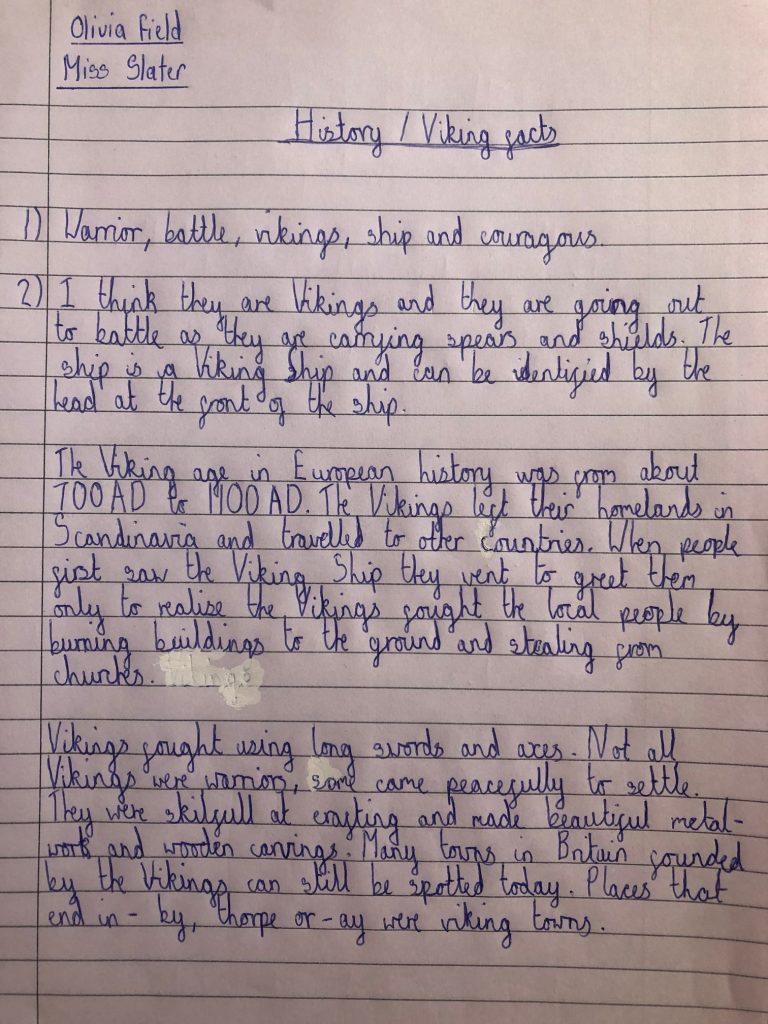 Olivia Field
Miss Slater
History / Viking facts
1) Warrior, battle, vikings, ship and couragous.
2) I think they are Vikings and they are going out
to battle as they are carrying spears and shields. The
ship is a Viking Ship and can be identified by the
head at the front of the ship.
The Viking age in European history was from about
700 AD to 1100 AD. The Vikings left their homelands in
Scandinavia and travelled to other countries. When people
first saw the Viking Ship they went to greet them
only to realise the Vikings fought the local people by
burning buildings to the ground and stealing from
churches.
Vikings fought using long swords and axes. Not all
Vikings were warriors, some came peacefully to settle.
They were skilfull at crafting and made beautiful metal-
work and wooden carvings. Many towns in Britain founded
by the Vikings can still be spotted today. Places that
end in - by, thorpe or -ay were viking towns.